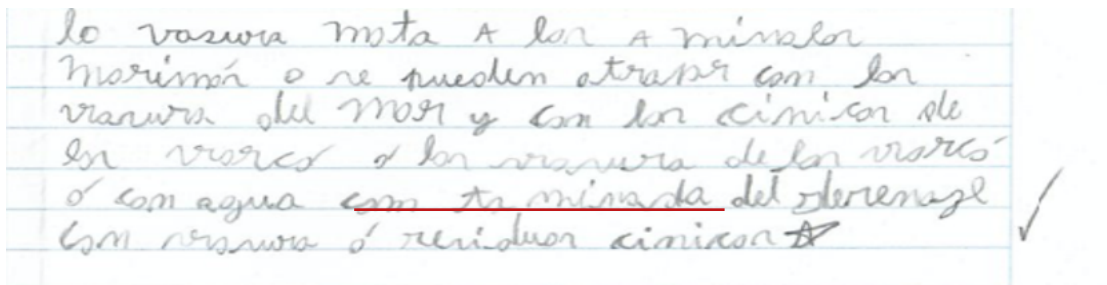 lo vasura mata A los A minales
marimos o se pueden atrapar con los
vasura del mar y con los cimicos de
los varcos o los vasura de los varcos
ó con agua com ta minada del derenage
con vasura ó residuos cimicos